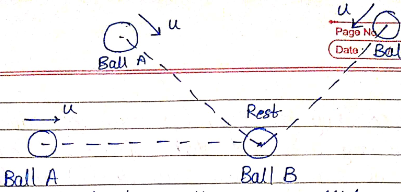 u
u
Page No
Date
Bal
Ball A
u
Rest
Ball A
Ball B